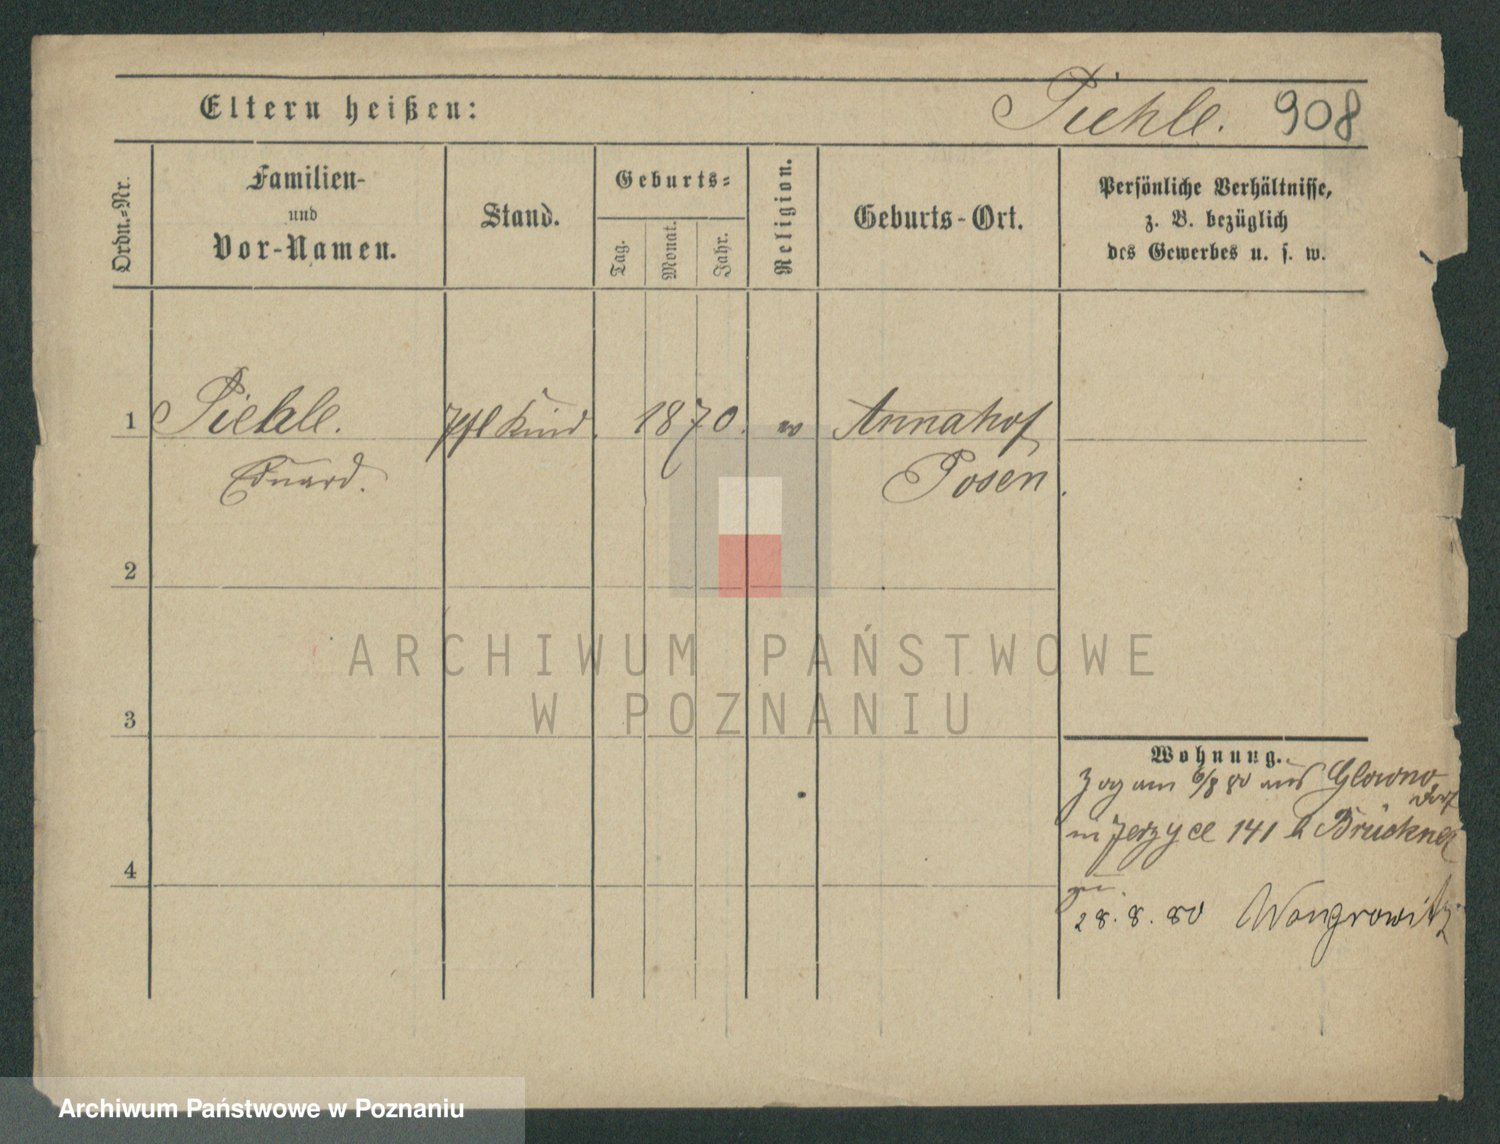 Eltern heißen:
Piehle. 908
Ordn.-Nr.
Familien-
und
Vor-Namen.
Stand.
Geburts-
Tag.
Monat.
Jahr.
Religion.
Geburts-Ort.
Persönliche Verhältnisse,
z. B. bezüglich
des Gewerbes u. s. w.
1 Piehle. Pfl Kind. 1870. w Annahof
Eduard. Posen.
2
3
4
Wohnung.
Zog am 6/8 80 aus Glowno
Dorf
in Jerzyce 141 b Brückner
28. 8. 80 Wongrowitz
ARCHIWUM PAŃSTWOWE
W POZNANIU
Archiwum Państwowe w Poznaniu